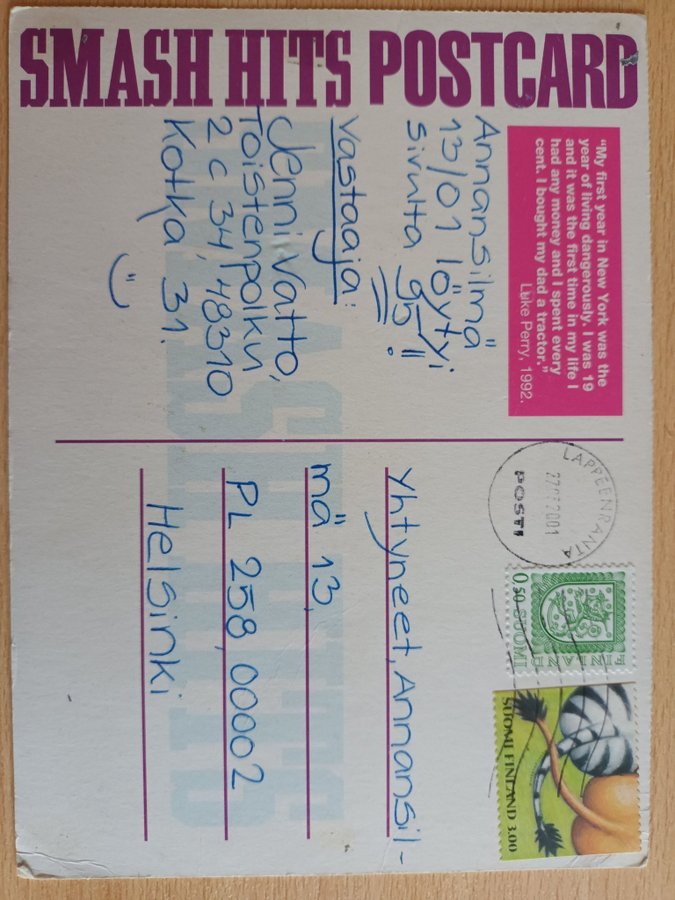 SMASH HITS POSTCARD
"My first year in New York was the
year of living dangerously. I was 19
and it was the first time in my life I
had any money and I spent every
cent. I bought my dad a tractor."
Luke Perry, 1992.
Annansilmä
13/01 löytyi
sivulta 95!
Vastaaja:
Jenni Vatto,
Toistenpolku
2 C 34, 48310
Kotka 31.
LAPPEENRANTA
POSTI
0,50 SUOMI
FINLAND
SUOMI FINLAND 3.00
Yhtyneet, Annansil-
mä 13,
PL 258, 00002
Helsinki
SMASH HITS